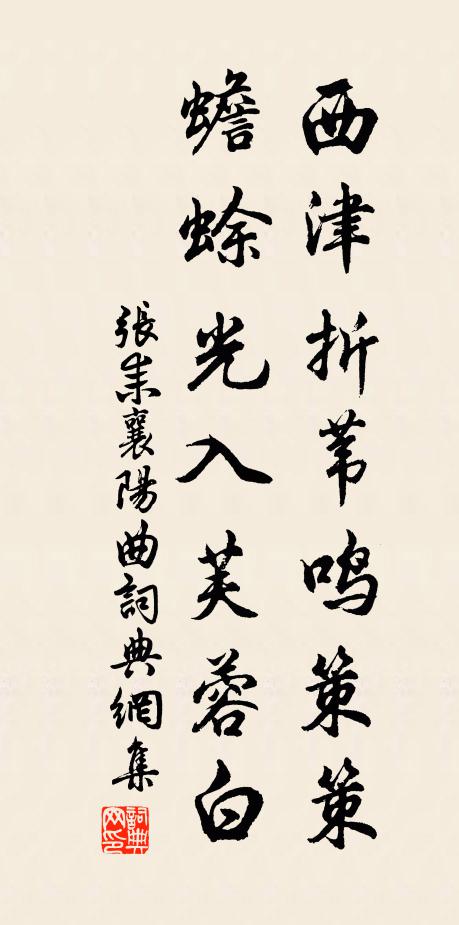 西津折苇鸣策策
蟾蜍光入芙蓉白
張耒襄陽曲詞典網集
詞典网印